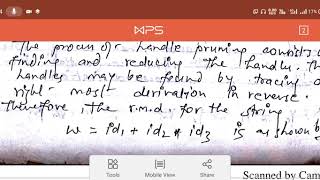 WPS
2
The process of handle pruning consists
finding and reducing the handles. Th
handles may be found by tracing
right-most derivation in reverse.
Therefore, the r.m.d. for the string
w = id1 + id2 * id3 is as shown b
Tools
Mobile View
Share
Scanned by Cam